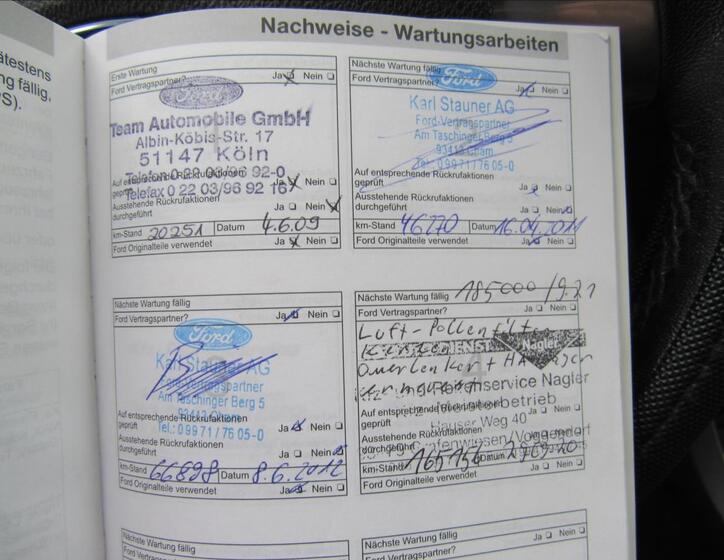 ätestens
ng fällig,
'S).
Nachweise - Wartungsarbeiten
Erste Wartung
Ford Vertragspartner? Ja Nein
Ford
Team Automobile GmbH
Albin-Köbis-Str. 17
51147 Köln
Telefon 0 22 03/96 92-0
Telefax 0 22 03/96 92 16
Auf entsprechende Rückrufaktionen
geprüft Ja Nein
Ausstehende Rückrufaktionen
durchgeführt Ja Nein
km-Stand 20251 Datum 4.6.09
Ford Originalteile verwendet Ja Nein
Nächste Wartung fällig
Ford Vertragspartner? Ja Nein
Ford
Karl Stauner AG
Ford-Vertragspartner
Am Taschinger Berg 5
93413 Cham
Tel.: 0 99 71 / 76 05-0
Auf entsprechende Rückrufaktionen
geprüft Ja Nein
Ausstehende Rückrufaktionen
durchgeführt Ja Nein
km-Stand 46270 Datum 16.04.2011
Ford Originalteile verwendet Ja Nein
Nächste Wartung fällig
Ford Vertragspartner? Ja Nein
Ford
Karl Stauner AG
Ford-Vertragspartner
Am Taschinger Berg 5
93413 Cham
Tel.: 0 99 71 / 76 05-0
Auf entsprechende Rückrufaktionen
geprüft Ja Nein
Ausstehende Rückrufaktionen
durchgeführt Ja Nein
km-Stand 66898 Datum 8.6.2012
Ford Originalteile verwendet Ja Nein
Nächste Wartung fällig 185000 / 9.21
Ford Vertragspartner? Ja Nein
Luft-Pollenfilter
Kerzen
Nagler
Querlenker + HA
Reifenservice Nagler
Auf entsprechende Rückrufaktionen
geprüft
Hauser Weg 40
Ausstehende Rückrufaktionen
durchgeführt
km-Stand 165154 Datum
Ford Originalteile verwendet Ja Nein
Nächste Wartung fällig
Ja Nein